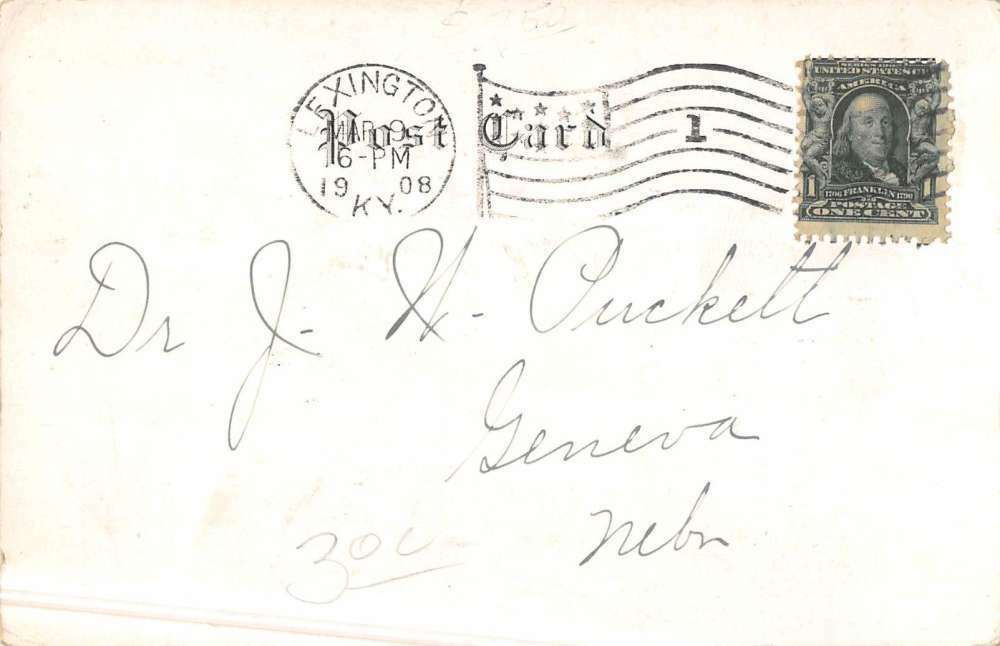 LEXINGTON
MAR 9
6-PM
19 08
KY.
Post Card
1
SERIES 1902
UNITED STATES OF
AMERICA
1 1706 FRANKLIN 1790 1
POSTAGE
ONE CENT
Dr J. H. Puckett
Geneva
Nebr
30c